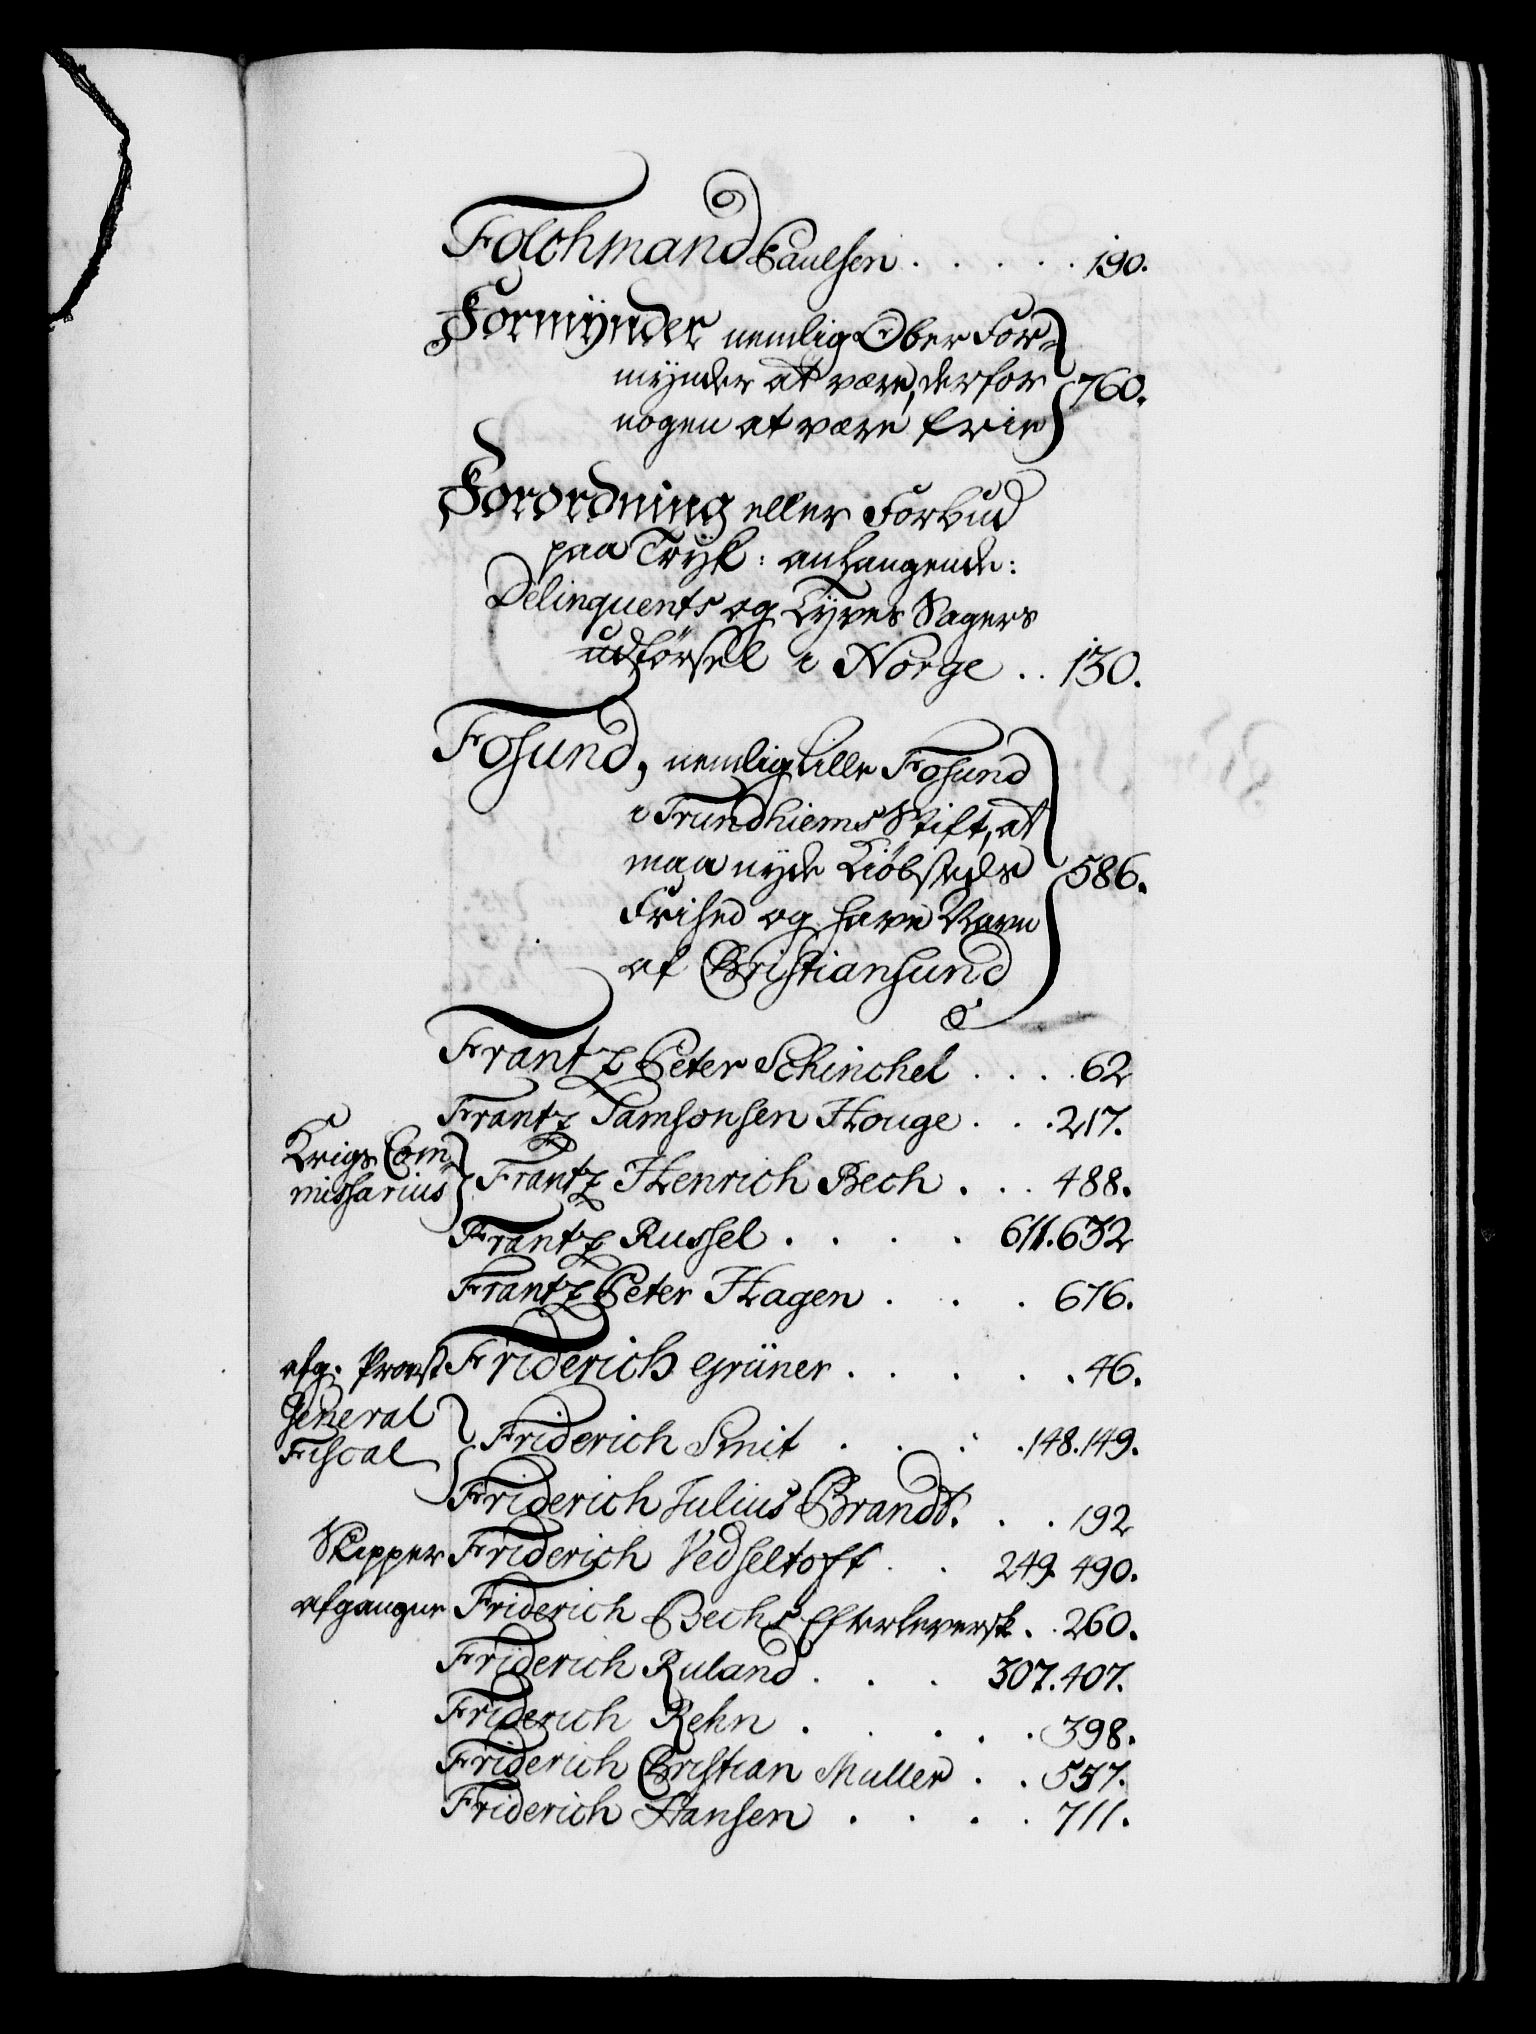 Folchmand Paulsen . . . . . 190.
Formÿnder nemlig Ober For=
mÿnder at være, derfor
nogen at være frie 760.
Forordning eller Forbud
paa Trÿk: anlangende:
Delinquents og Tyves Sagers
udførsel i Norge . . 130.
Fosund, nemlig Lille Fosund
i Trundhiems Stift, at
maa nÿde Kiøbsteds 586.
Frihed og have Navn
af Christiansund
Frantz Peter Schinchel . . . . 62
Frantz Samsonsen Houge . . . 217.
Krigs Com=
missarius Frantz Henrich Bech . . . 488.
Frantz Russel . . . . 611. 632
Frantz Peter Hagen . . . 676.
afg. Provst Friderich Grüner . . . . . 46.
General
Fiscal Friderich Smit . . . . 148. 149.
Friderich Julius Brandt . . . 192
Skipper Friderich Vedseltoft . . 249. 490.
afgangne Friderich Bechs Efterleversk. . 260.
Friderich Ruland . . . 307. 407.
Friderich Rehn . . . . . 398.
Friderich Christian Muller . . 557.
Friderich Hansen . . . . 711.